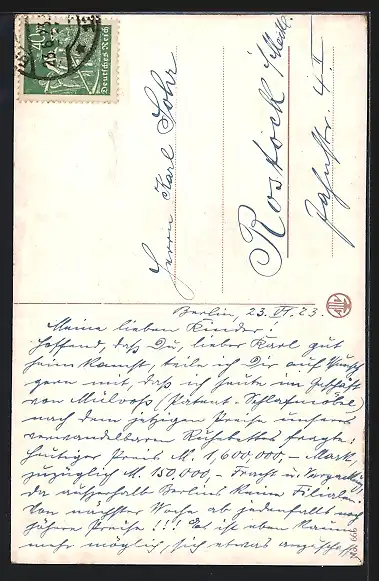 40
Deutsches Reich
Herrn Karl Sohr
Rostock i/Meckl.
4 II
Berlin, 23. VI. 23.
Meine lieben Kinder!
Hoffend, daß Du, lieber Karl gut
heimkamst, teile ich Dir auf Wunsch
gern mit, daß ich heute im Geschäft
von (Patent-Schlafmöbel)
nach dem jetzigen Preise unseres
verwandelbaren Ruhebettes fragte:
Heutiger Preis M. 1,600,000,- Mark,
zuzüglich M. 150,000,- Fracht u. Verpackung,
da außerhalb Berlins keine Filialen.
Von nächster Woche ab jedenfalls noch
höhere Preise!!! Es ist eben kaum
mehr möglich, sich etwas anzuschaffen
No. 666